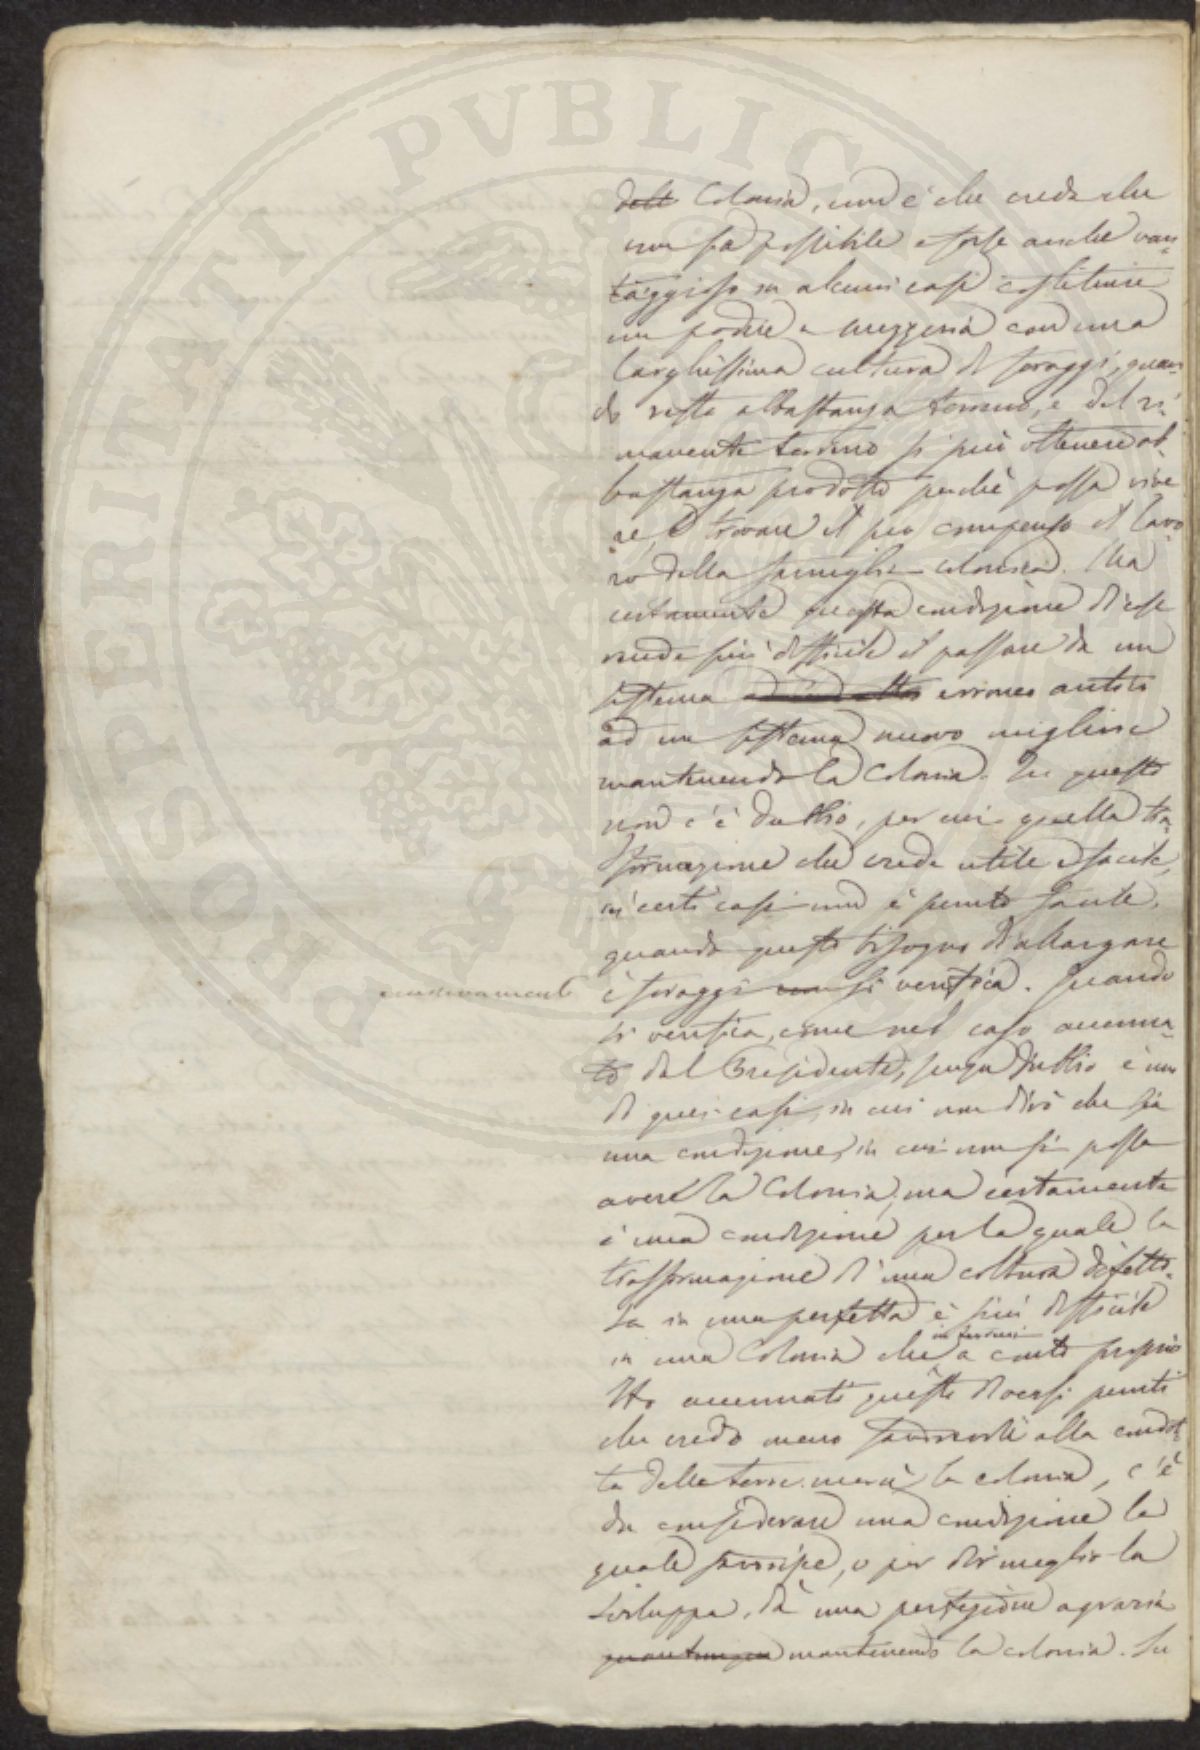 dell Colonia, non è che creda che
non sia possibile e forse anche van-
taggioso in alcuni casi costituire
un podere a mezzeria con una
larghissima cultura di foraggi, quan-
do resta abbastanza terreno, e dal ri-
manente terreno si può ottenere ab-
bastanza prodotto perchè possa vive
re, e trovare il suo compenso il lavo-
ro della famiglia colonica. Ma
certamente questa condizione di cose
rende più difficile il passare da un
sistema erroneo antico
ad un sistema nuovo migliore
mantenendo la Colonia. In questo
non c'è dubbio, per cui quella tra-
sformazione che crede utile e facile,
in certi casi non è punto facile,
quando questo bisogno d'allargare
i foraggi non si verifica. Quando
si verifica, come nel caso accenna-
to dal Presidente, senza dubbio è uno
di quei casi, in cui non dirò che sia
una condizione, in cui non si possa
avere la Colonia, ma certamente
è una condizione per la quale la
trasformazione d'una coltura difetto-
sa in una perfetta è più difficile
in una Colonia che a conto proprio
Ho accennato questi diversi punti
che credo meno favorevoli alla condot-
ta delle terre mercè la colonia, c'è
da considerare una condizione la
quale favorisce, o per dir meglio la
sviluppa, dà una perfezione agraria
quantunque mantenendo la colonia. In
PROSPERITATI PVBLICAE